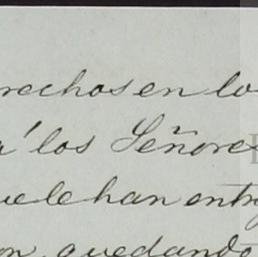 rechos en lo
a' los Señores
uele han entr
on, quedando